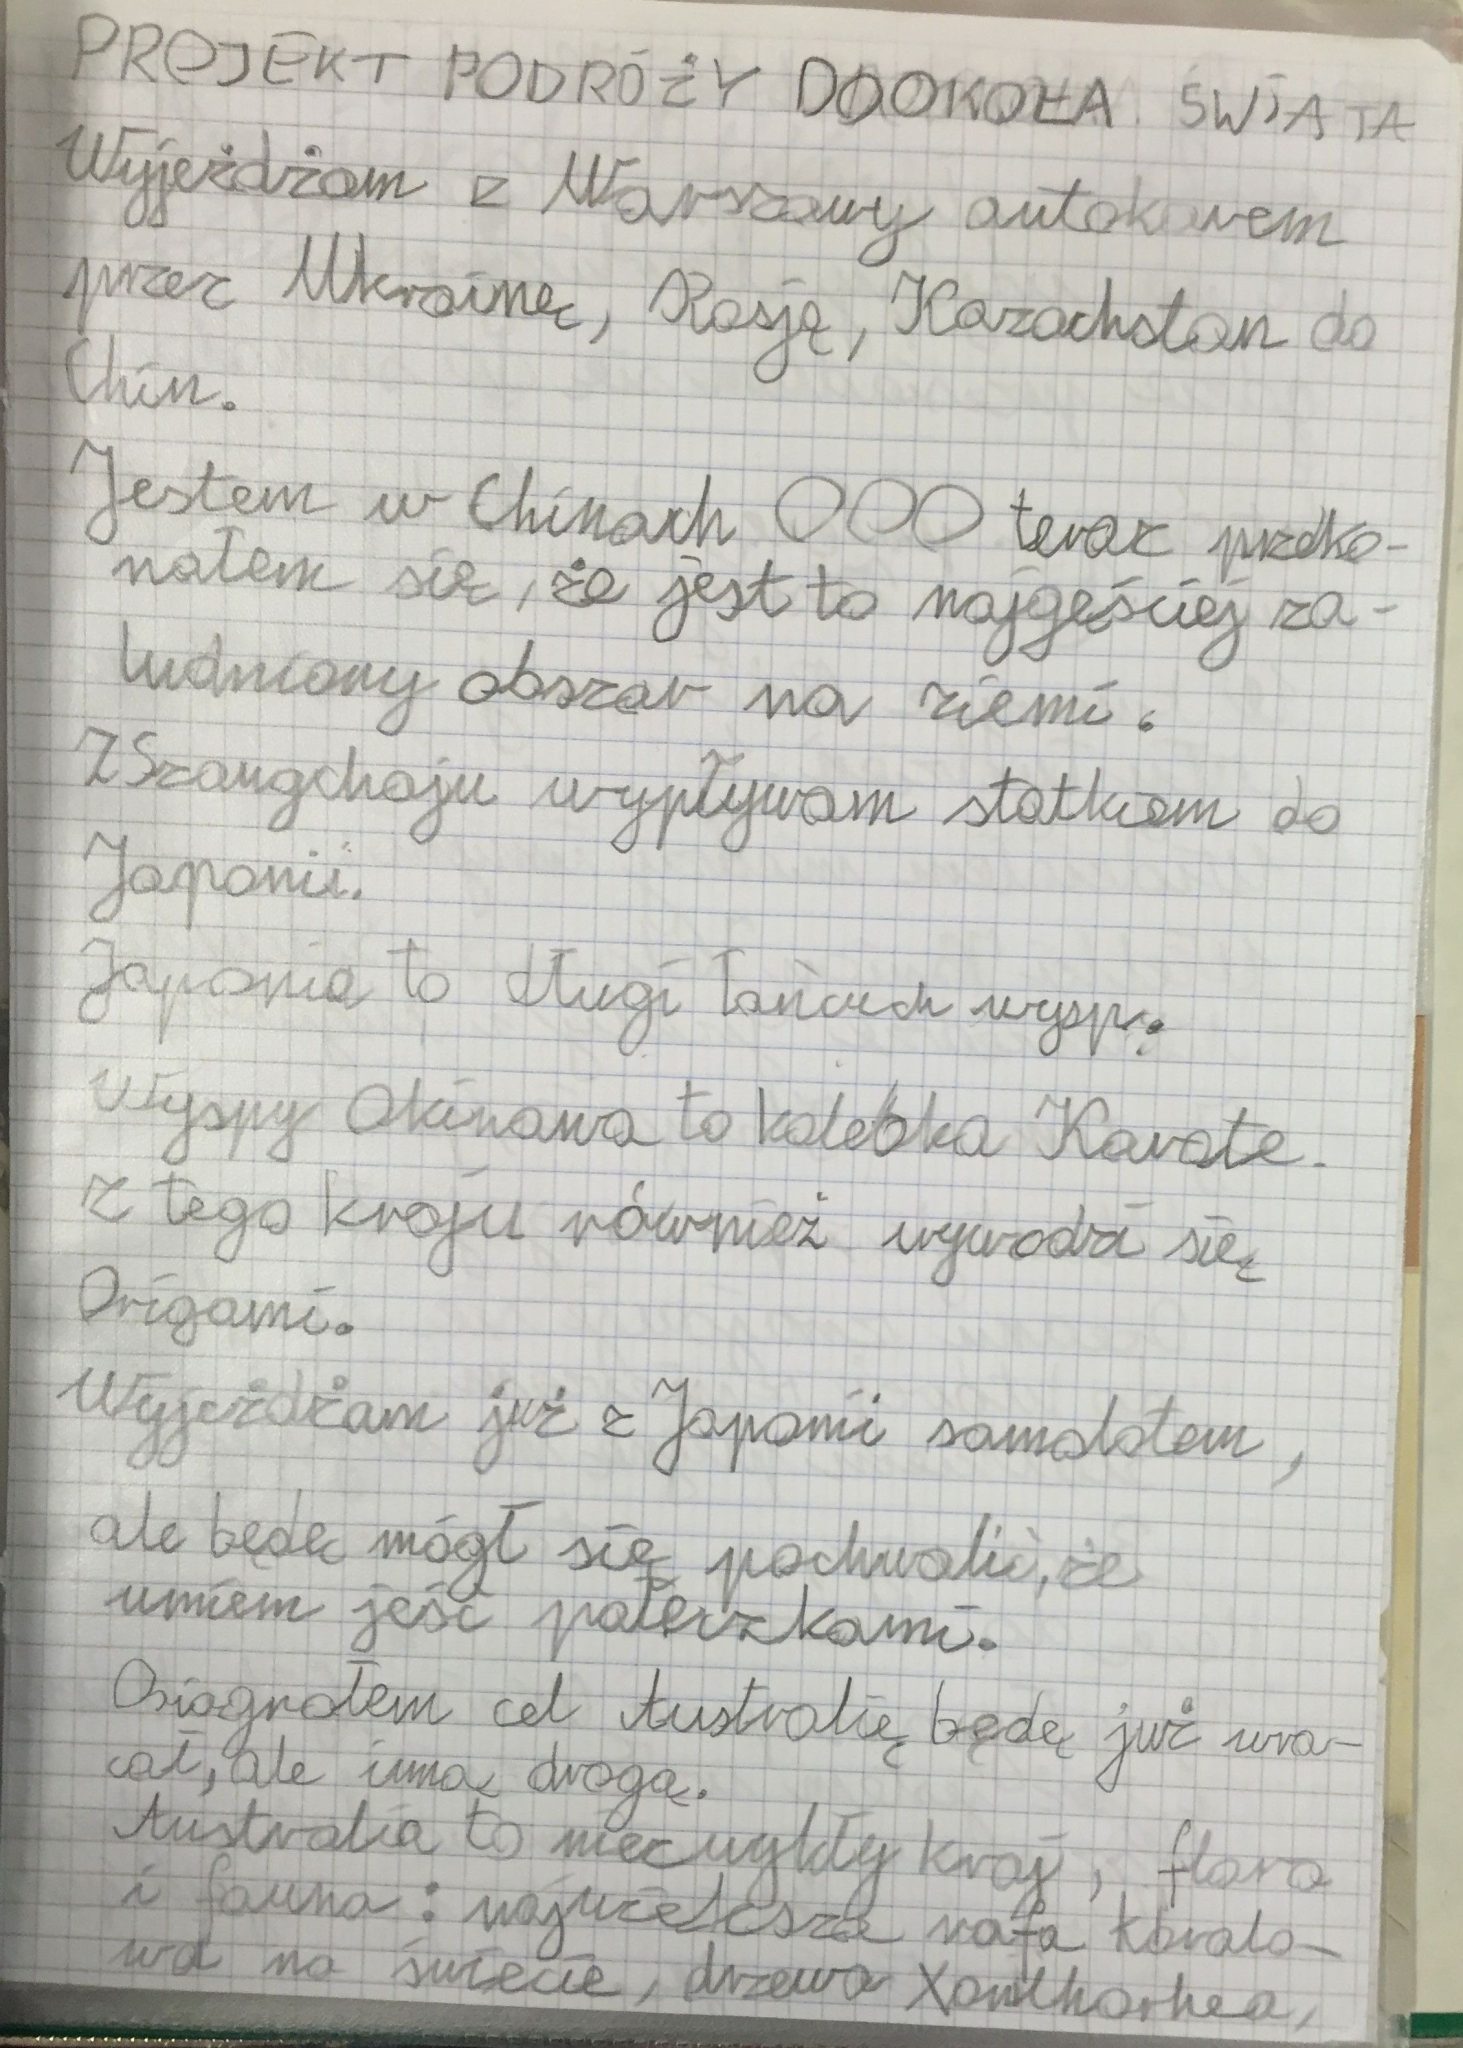 PROJEKT PODRÓŻY DOOKOŁA ŚWIATA
Wyjeżdżam z Warszawy autokarem
przez Ukrainę, Rosję, Kazachstan do
Chin.
Jestem w Chinach OOO teraz przeko-
nałem się, że jest to najgęściej za-
ludniony obszar na ziemi.
Z Szanghaju wypływam statkiem do
Japonii.
Japonia to długi łańcuch wysp.
Wyspy Okinawa to kolebka Karate.
Z tego kraju również wywodzi się
Origami.
Wyjeżdżam już z Japonii samolotem,
ale będę mógł się pochwalić, że
umiem jeść pałeczkami.
Osiągnąłem cel Australię będę już wra-
cał, ale inną drogą.
Australia to niezwykły kraj, flora
i fauna: największa rafa koralo-
wa na świecie, drzewa Xanthorhea,